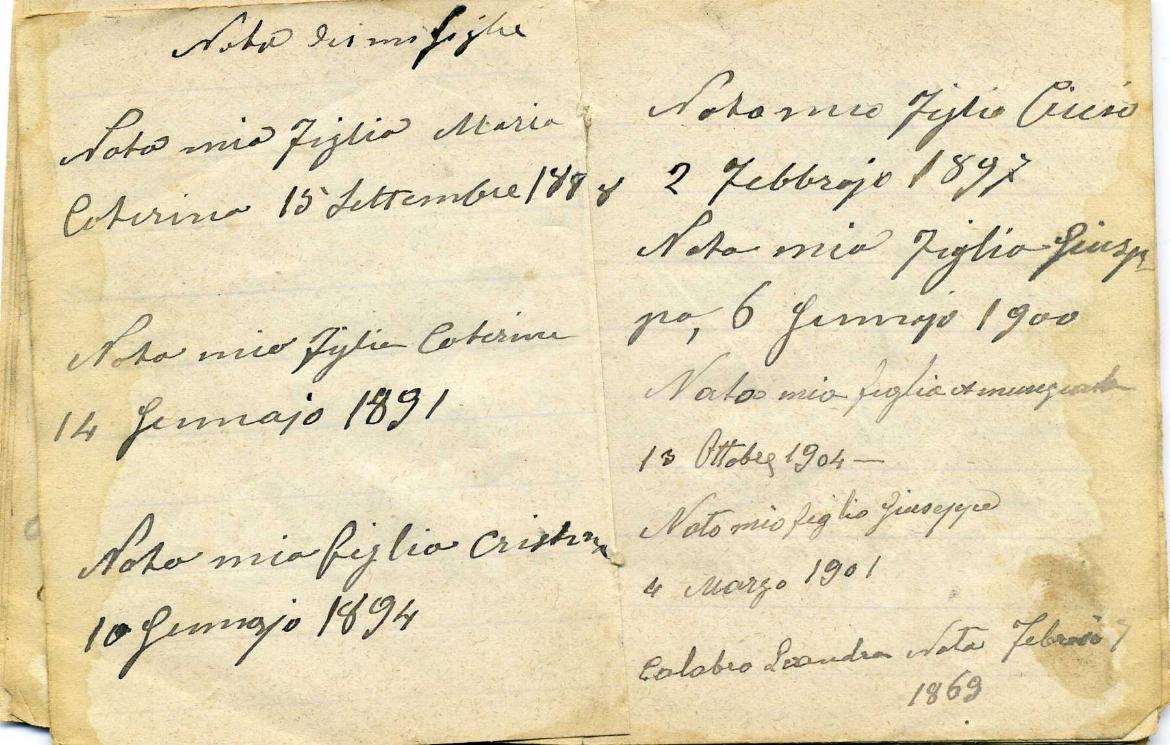 Nota dei mi figlie
Nata mia Figlia Maria
Caterina 15 Settembre 1888
Nata mia Figlia Caterina
14 Gennajo 1891
Nata mia figlia Cristina
10 Gennajo 1894
Nato mio Figlio Ciccio
2 Febbrajo 1897
Nata mia Figlia Giusep
pa, 6 Gennajo 1900
Nata mia figlia Annunziata
13 Ottobre 1904 —
Nato mio figlio Giuseppe
4 Marzo 1901
Calabro Leandra Nata Febraio 7
1869